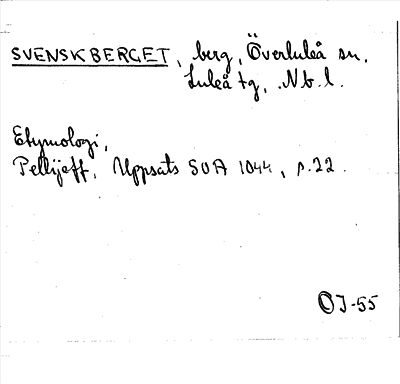 SVENSKBERGET, berg, Överluleå sn,
Luleå tg, Nb. l.
Etymologi,
Pellijeff, Uppsats SOA 1044, s. 22.
OJ-55